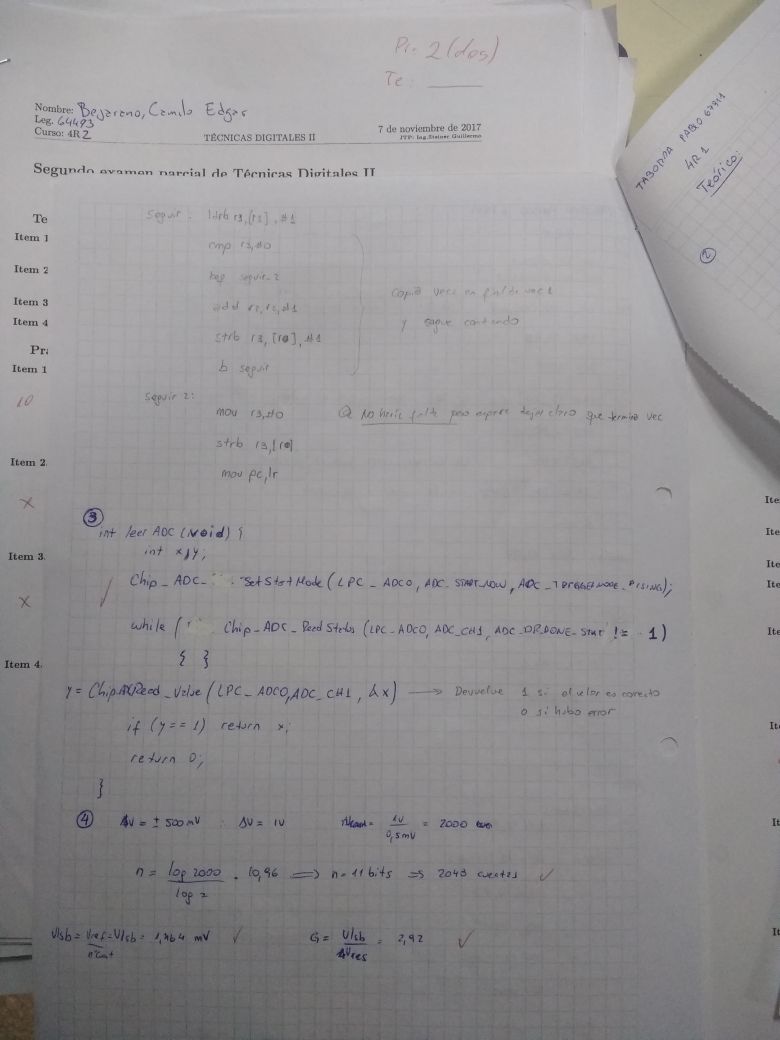 Pr: 2 (dos)
Te:
Nombre: Bejarano, Camilo Edgar
Leg. 64493
Curso: 4R2
TÉCNICAS DIGITALES II
7 de noviembre de 2017
JTP: Ing. Steiner Guillermo
Segundo examen parcial de Técnicas Digitales II
TABORDA PABLO 67311
4R1
Teórico:
2
Te
Item 1
Item 2
Item 3
Item 4
Item 1
10
Item 2
x
Item 3
x
Item 4
Seguir: ldrb r3,[r2], #1
cmp r3,#0
beq seguir_2
add r2,r2,#1
strb r3, [r0], #1
b seguir
Copia vec2 en final de vec1
y sigue contando
Seguir 2:
mov r3,#0
No haría falta pero espera dejar claro que termina vec
strb r3,[r0]
mov pc,lr
3
int leer ADC (void) {
int x,y;
Chip_ADC_ SetStartMode (LPC_ADC0, ADC_START_NOW, ADC_TRIGGERMODE_RISING);
while ( Chip_ADC_ReadStatus (LPC_ADC0, ADC_CH1, ADC_DR_DONE_STAT != 1)
{ }
y = Chip ADC Read_Value (LPC_ADC0, ADC_CH1, &x) → Devuelve 1 si el valor es correcto
0 si hubo error
if (y == 1) return x;
return 0;
}
4 ΔV = ± 500 mV ΔV = 1V = 1V / 0,5mV = 2000
n = log 2000 / log 2 = 10,96 ⟹ n = 11 bits ⇒ 2048 cuentas ✓
Vlsb = Vref = Vlsb = 1,464 mV ✓ G = Vlsb / ΔVres = 2,92 ✓
Ite
Ite
Ite
Ite
Ite
Ite
It
It